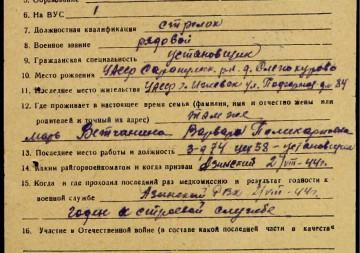 6. На ВУС 1
7. Должностная квалификация стрелок
8. Военное звание рядовой
9. Гражданская специальность установщик
10. Место рождения УАССР Сарапульск. р-н, д. Оленокурово
11. Последнее место жительства УАССР г. Ижевск ул. Подгорная д. 34
12. Где проживает в настоящее время семья (фамилия, имя и отчество жены или
родителей и точный их адрес) там же
мать Ветчанина Варвара Поликарповна
13. Последнее место работы и должность з-д 74 цех 53 - установщик
14. Каким райгорвоенкоматом и когда призван Азинский 2/VIII-44г.
15. Когда и где проходил последний раз медкомиссию и результат годности к
военной службе Азинский РВК 2/VIII-44г.
годен к строевой службе
16. Участие в Отечественной войне (в составе какой последней части в качестве